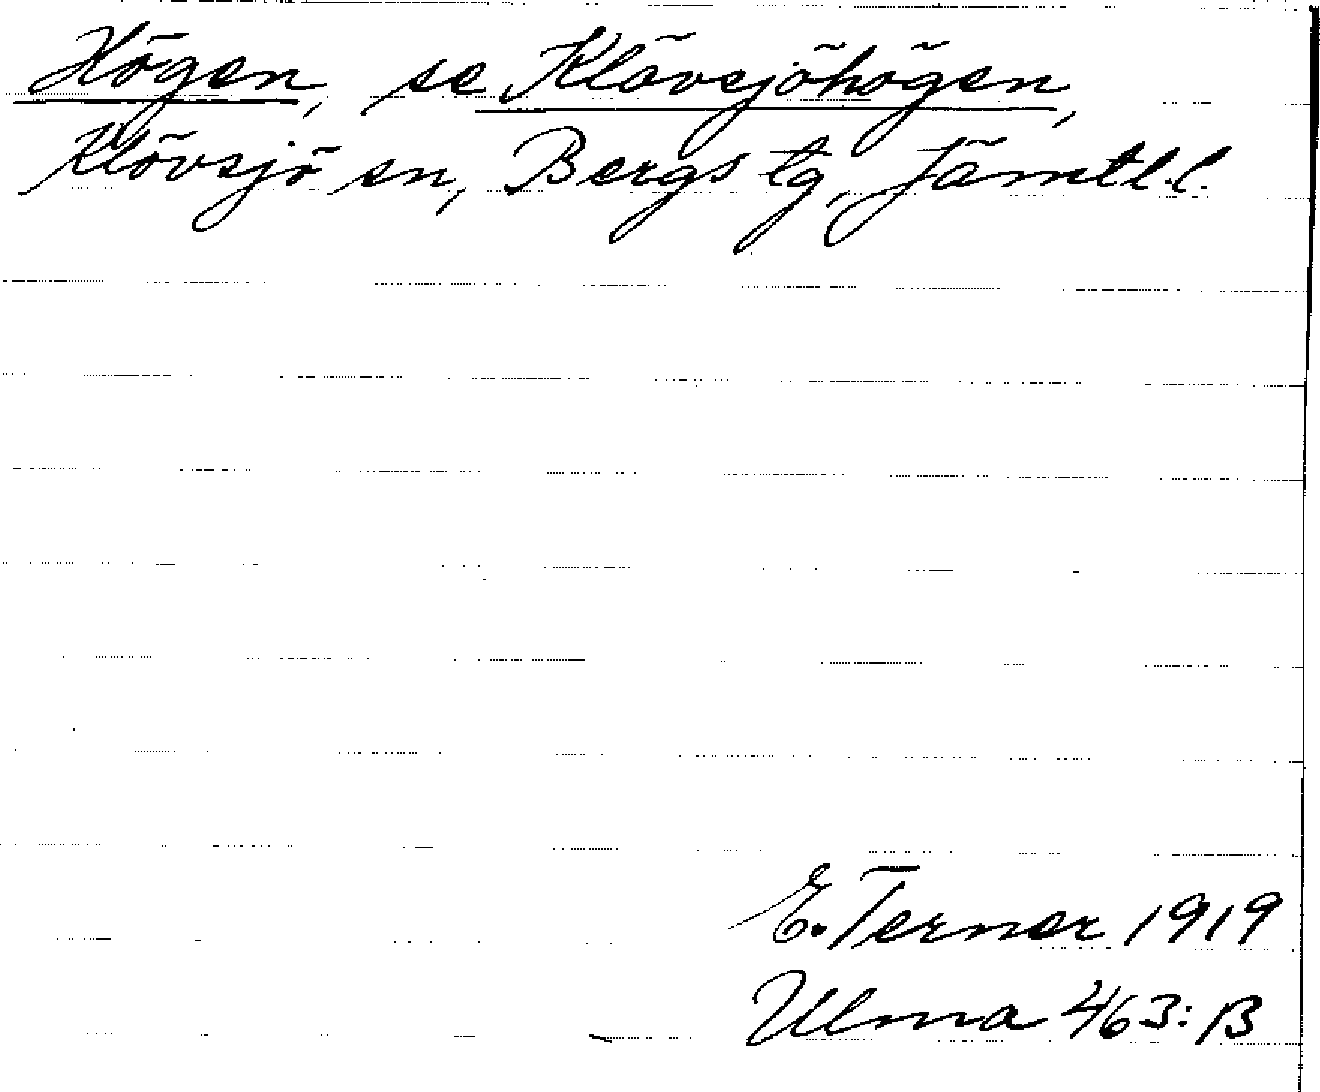 Högen, se Klövsjöhögen,
Klövsjö sn, Bergs tg, Jämtl.l.
E. Terner 1919
Ulma 463:B